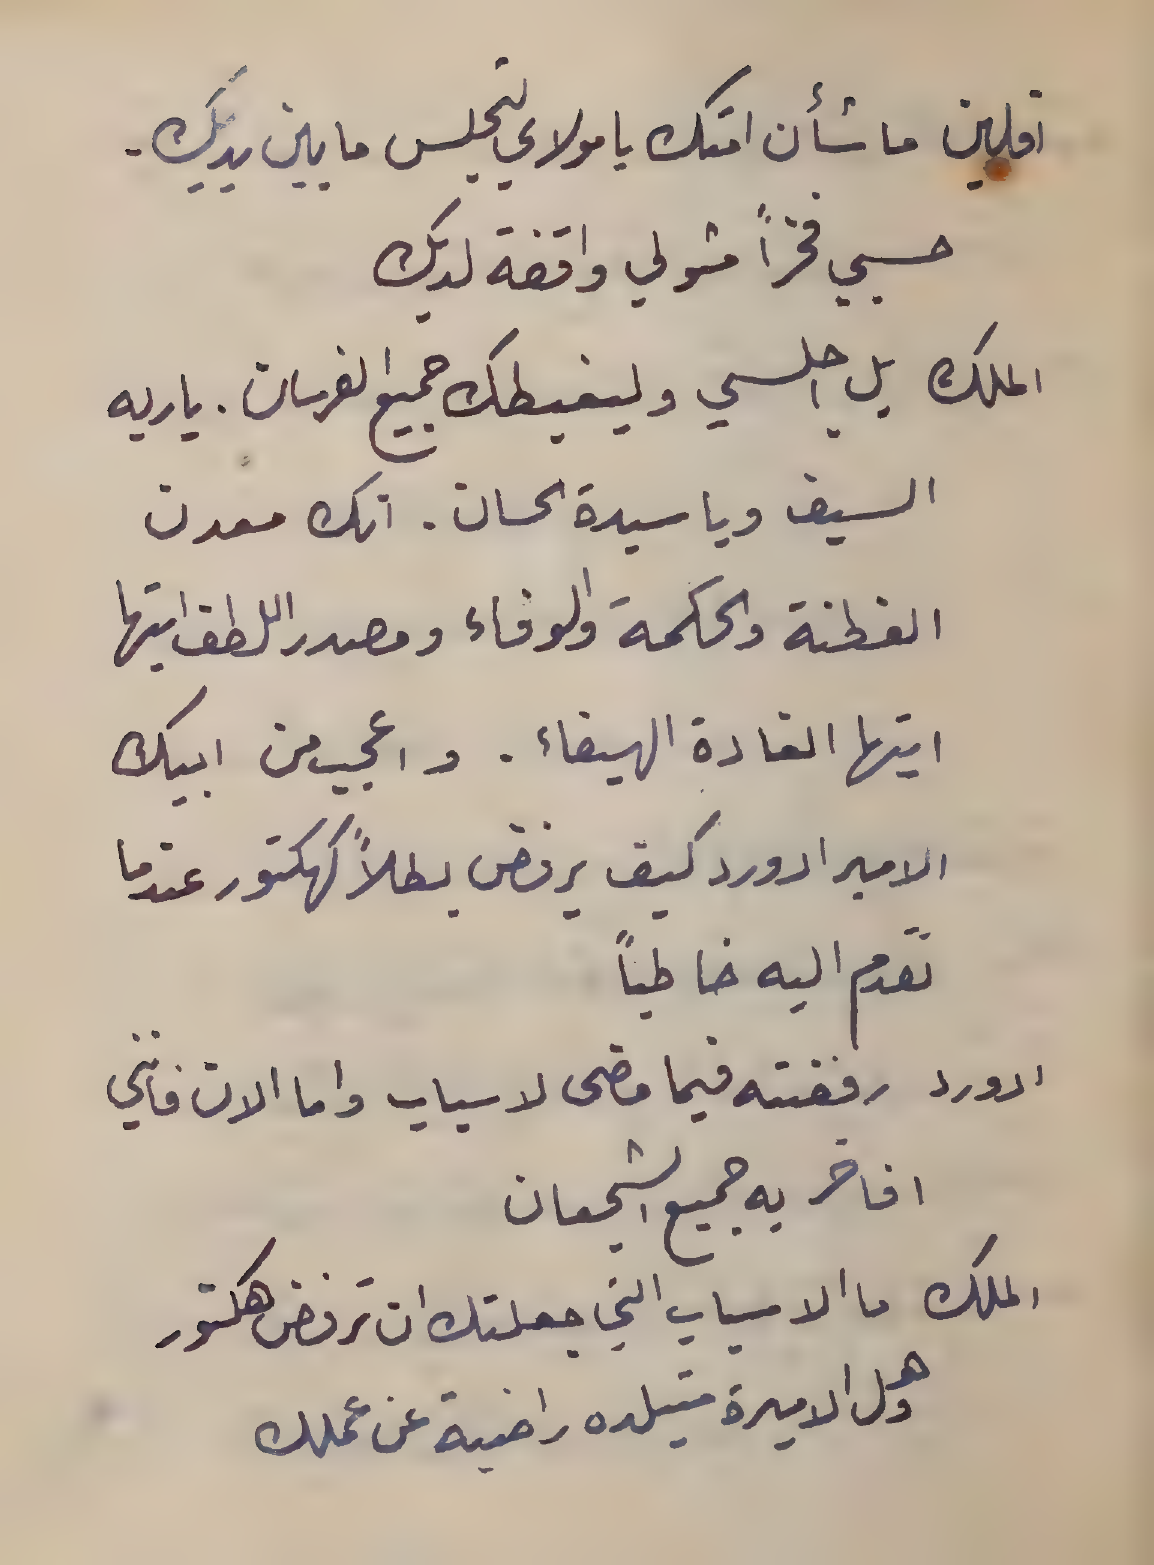 افلين ما شأن امتك يا مولاي لتجلس ما بين يديك -
حسبي فخراً مثولي واقفة لديك
الملك بل اجلسي وليغبطك جميع الفرسان . يا ربه
السيف ويا سيدة الحسان . انك معدن
الفطنة والحكمة والوفاء ومصدر اللطف ايتها
ايتها الغادة الهيفاء . واعجب من ابيك
الامير ادورد كيف يرفض بطلاً كهكتور عندما
تقدم اليه خاطباً
ادورد رفضته فيما مضى لاسباب واما الان فانني
افاخر به جميع الشجعان
الملك ما الاسباب التي جعلتك ان ترفض هكتور
وهل الاميرة متيلده راضية عن عملك